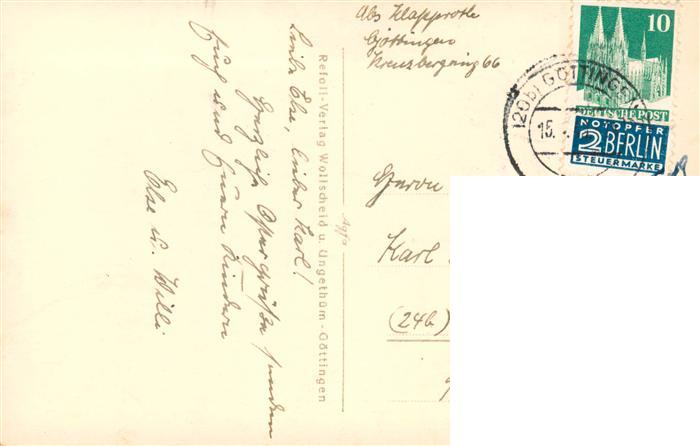 Abs Klapproth
Göttingen
Kreuzbergring 66
10
DEUTSCHE POST
NOTOPFER
2 BERLIN
STEUERMARKE
(20b) GÖTTINGEN
15.
Liebe Else, lieber Karl!
Herzliche Ostergrüße senden
Euch und Euern Kindern
Else u. Willi
Refoli-Verlag Wollscheid u. Ungethüm - Göttingen
Agfa
Herrn
Karl
(24b)